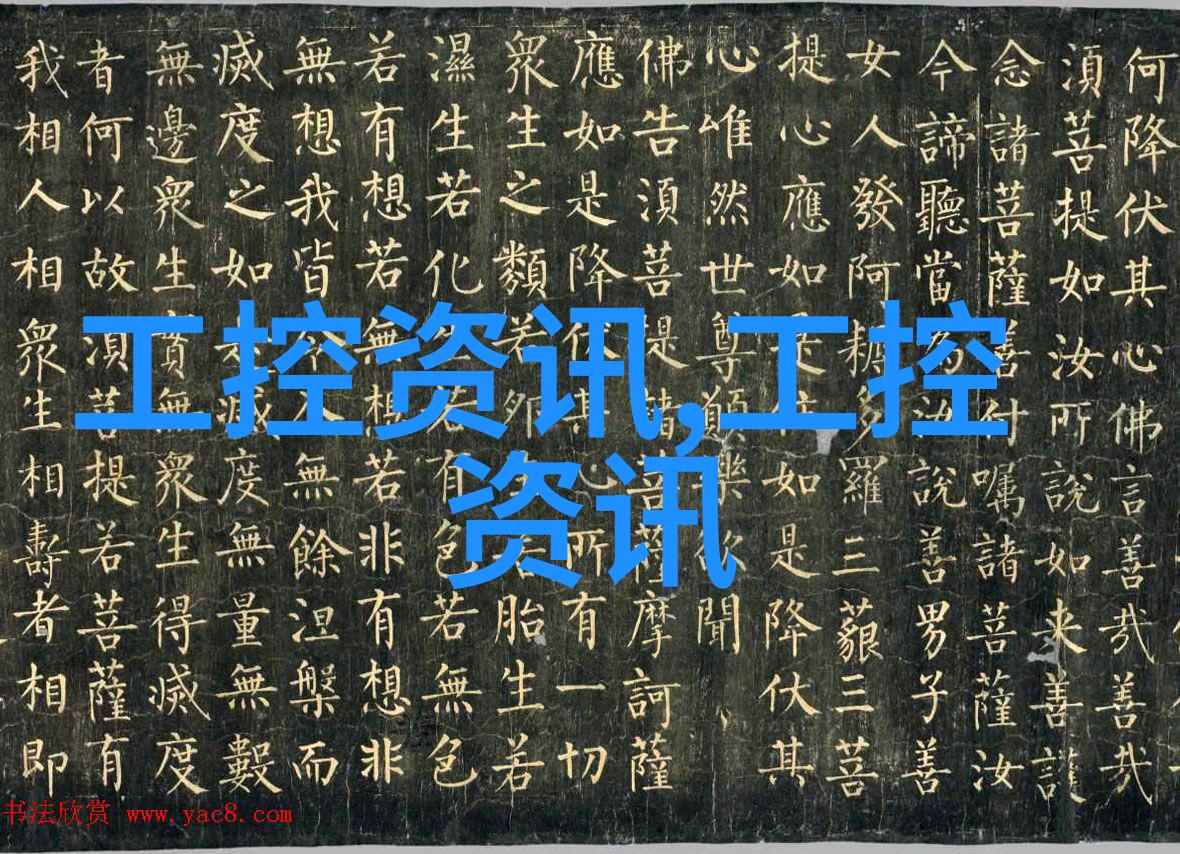 何降伏其心佛言善哉善哉
須菩提如汝所說如来善護
念諸菩薩善付囑諸菩薩汝
今諦聽當為汝說善男子善
女人發阿耨多羅三藐三菩
提心應如是住如是降伏其
心唯然世尊願樂欲聞
佛告須菩提諸菩薩摩訶薩
應如是降伏其心所有一切
眾生之類若卵生若胎生若
濕生若化生若有色若無色
若有想若無想若非有想非
無想我皆令入無餘涅槃而
滅度之如是滅度無量無數
無邊眾生實無眾生得滅度
者何以故須菩提若菩薩有
我相人相眾生相壽者相即
工控资讯,工控
资讯
书法欣赏 www.yac8.com